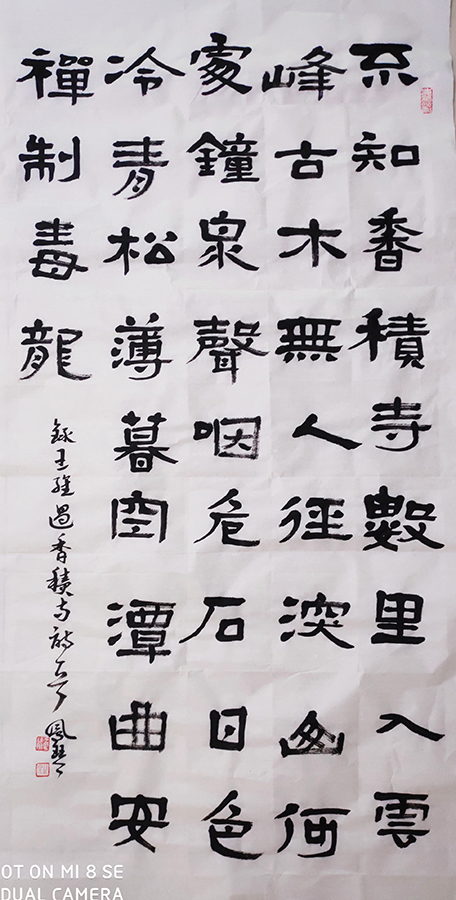 不知香積寺數里入雲
峰古木無人徑深山何
處鐘泉聲咽危石日色
冷青松薄暮空潭曲安
禪制毒龍
錄王維過香積寺詩
OT ON MI 8 SE
DUAL CAMERA